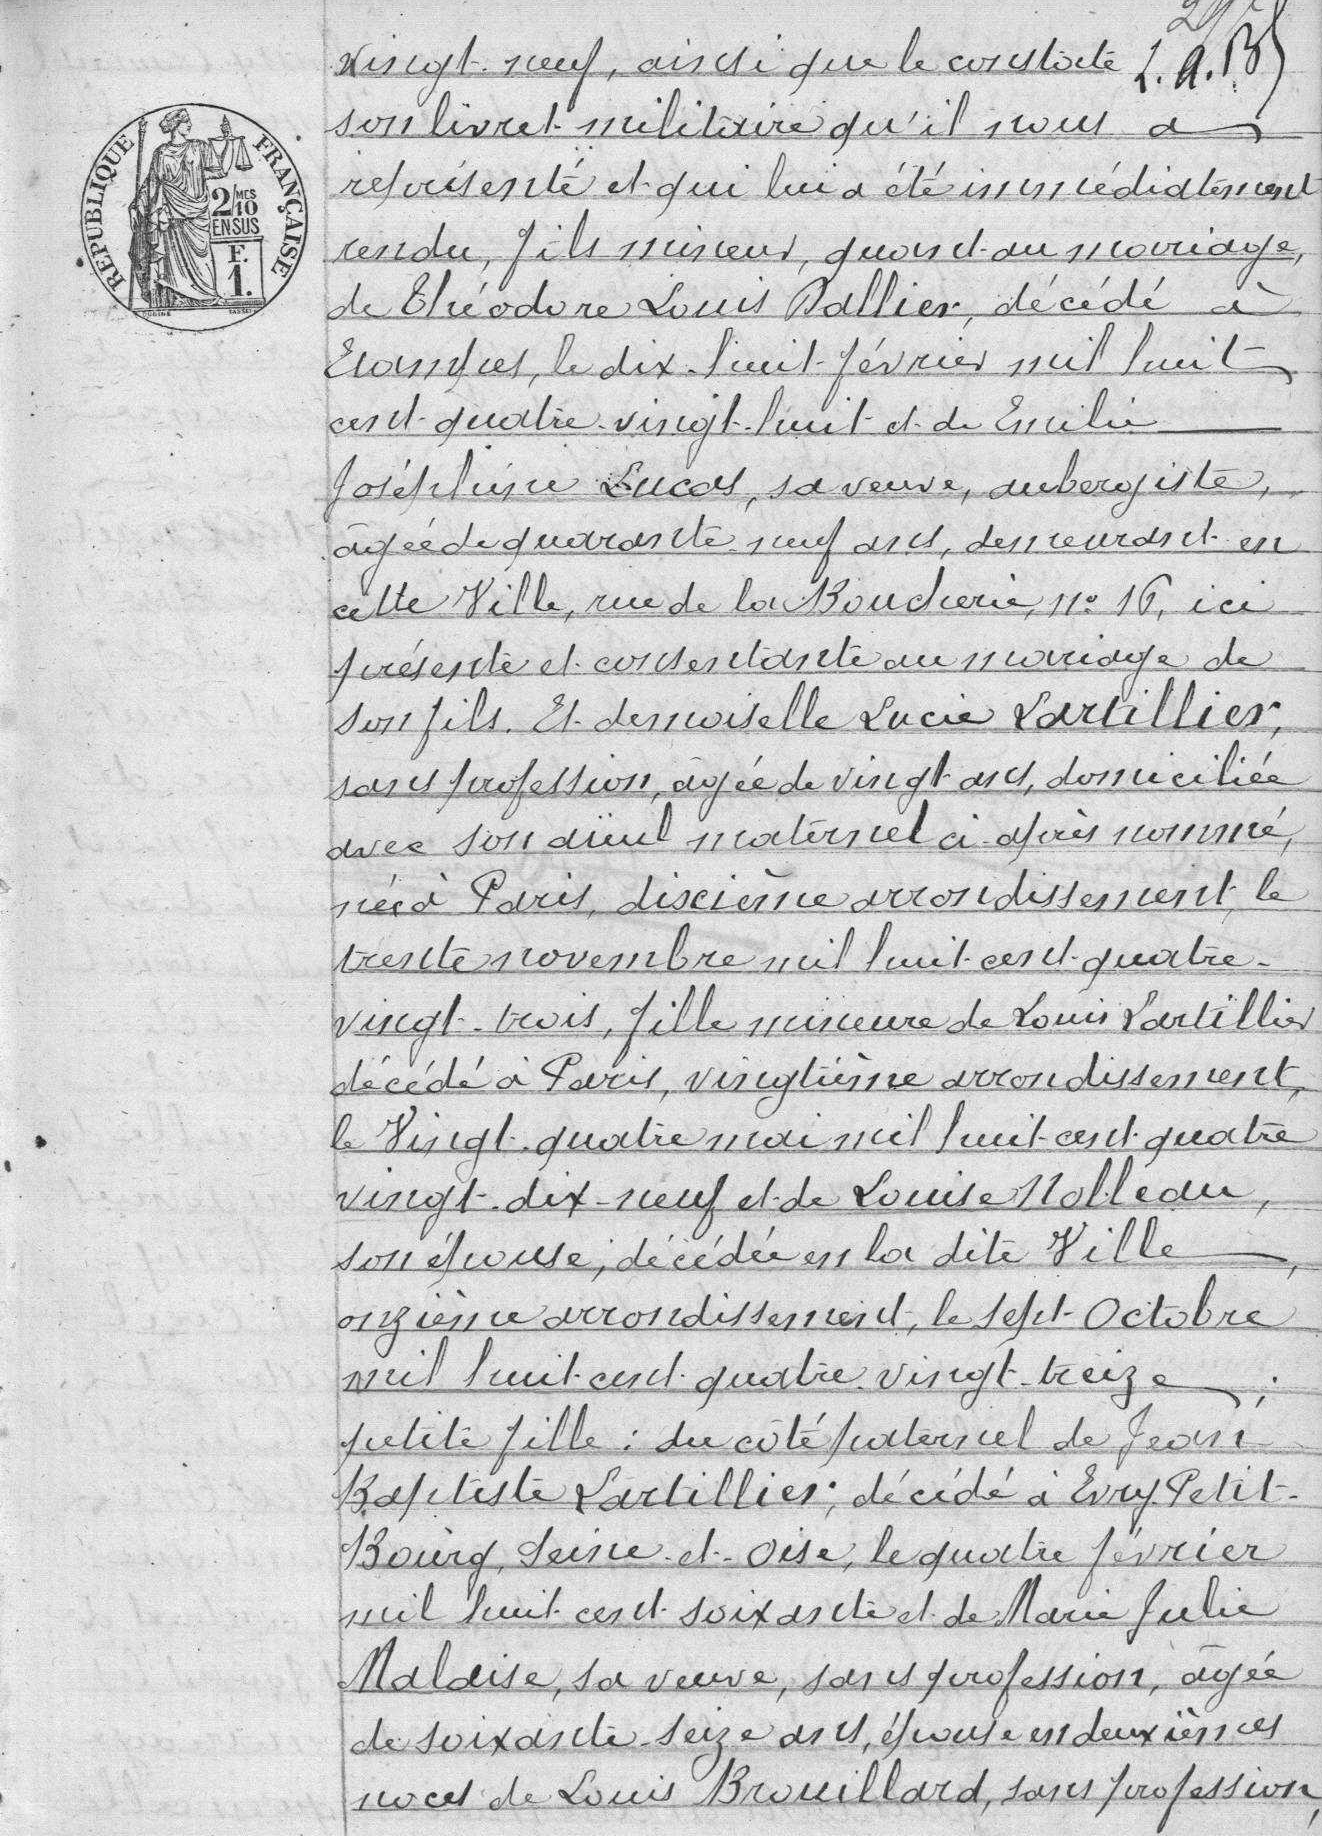 L. A. B
vingt-neuf, ainsi que le constate
son livret militaire qu'il nous a
RÉPUBLIQUE FRANÇAISE
2/10 MES
EN SUS
F.
1.
représenté et qui lui a été immédiatement
rendu, fils mineur, quant au mariage,
de Théodore Louis Pallier, décédé à
Etampes, le dix-huit février mil huit
cent quatre-vingt-huit et de Emilie
Joséphine Lucas, sa veuve, aubergiste,
âgée de quarante-neuf ans, demeurant en
cette Ville, rue de la Boucherie, no 16, ici
présente et consentante au mariage de
son fils. Et demoiselle Lucie Lartillier,
sans profession, âgée de vingt ans, domiciliée
avec son aïeul maternel ci-après nommé,
née à Paris, dixième arrondissement, le
trente novembre mil huit cent quatre-
vingt-trois, fille mineure de Louis Lartillier
décédé à Paris, vingtième arrondissement,
le Vingt-quatre mai mil huit cent quatre
vingt-dix-neuf et de Louise Nolleau,
son épouse, décédée en la dite Ville,
onzième arrondissement, le sept Octobre
mil huit cent quatre-vingt-treize;
petite fille : du côté paternel de Jean
Baptiste Lartillier, décédé à Evry-Petit-
Bourg, Seine-et-Oise, le quatre février
mil huit cent soixante et de Marie Julie
Malaise, sa veuve, sans profession, âgée
de soixante-seize ans, épouse en deuxièmes
noces de Louis Brouillard, sans profession,